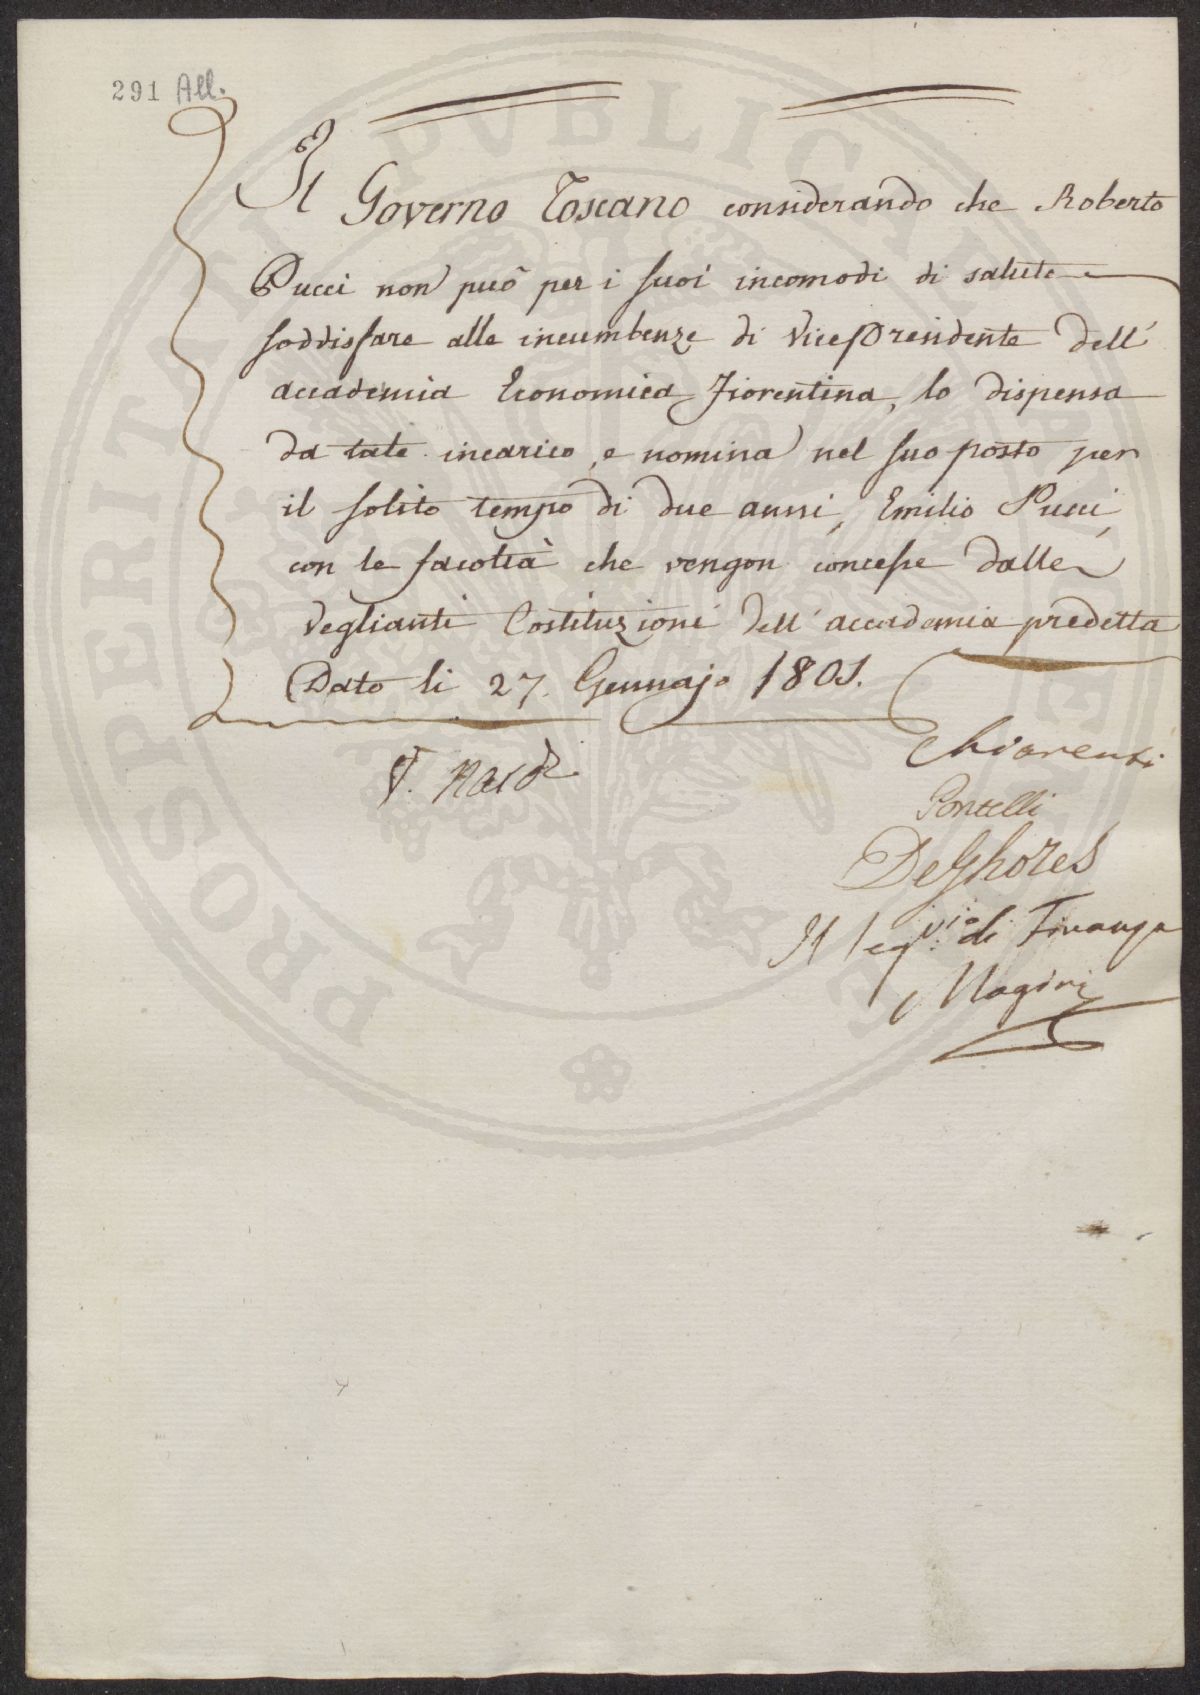 291 All.
Il Governo Toscano considerando che Roberto
Pucci non può per i suoi incomodi di salute
soddisfare alle incumbenze di Vice Presidente dell'
accademia Economica Fiorentina, lo dispensa
da tale incarico, e nomina nel suo posto per
il solito tempo di due anni, Emilio Pucci,
con le facoltà che vengon concesse dalle
veglianti Costituzioni dell'accademia predetta
Dato li 27. Gennajo 1801.
Chiarenti
Pontelli
De Ghores
Il Seg.rio di Finanza
Magini
PROSPERITATI PVBLICAE